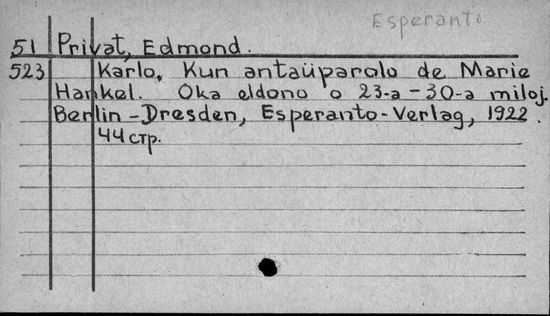 Esperanto
51 Privat, Edmond.
523 Karlo, Kun antaŭparolo de Marie
Hankel. Oka eldono o 23-a - 30-a miloj.
Berlin - Dresden, Esperanto - Verlag, 1922.
44 стр.